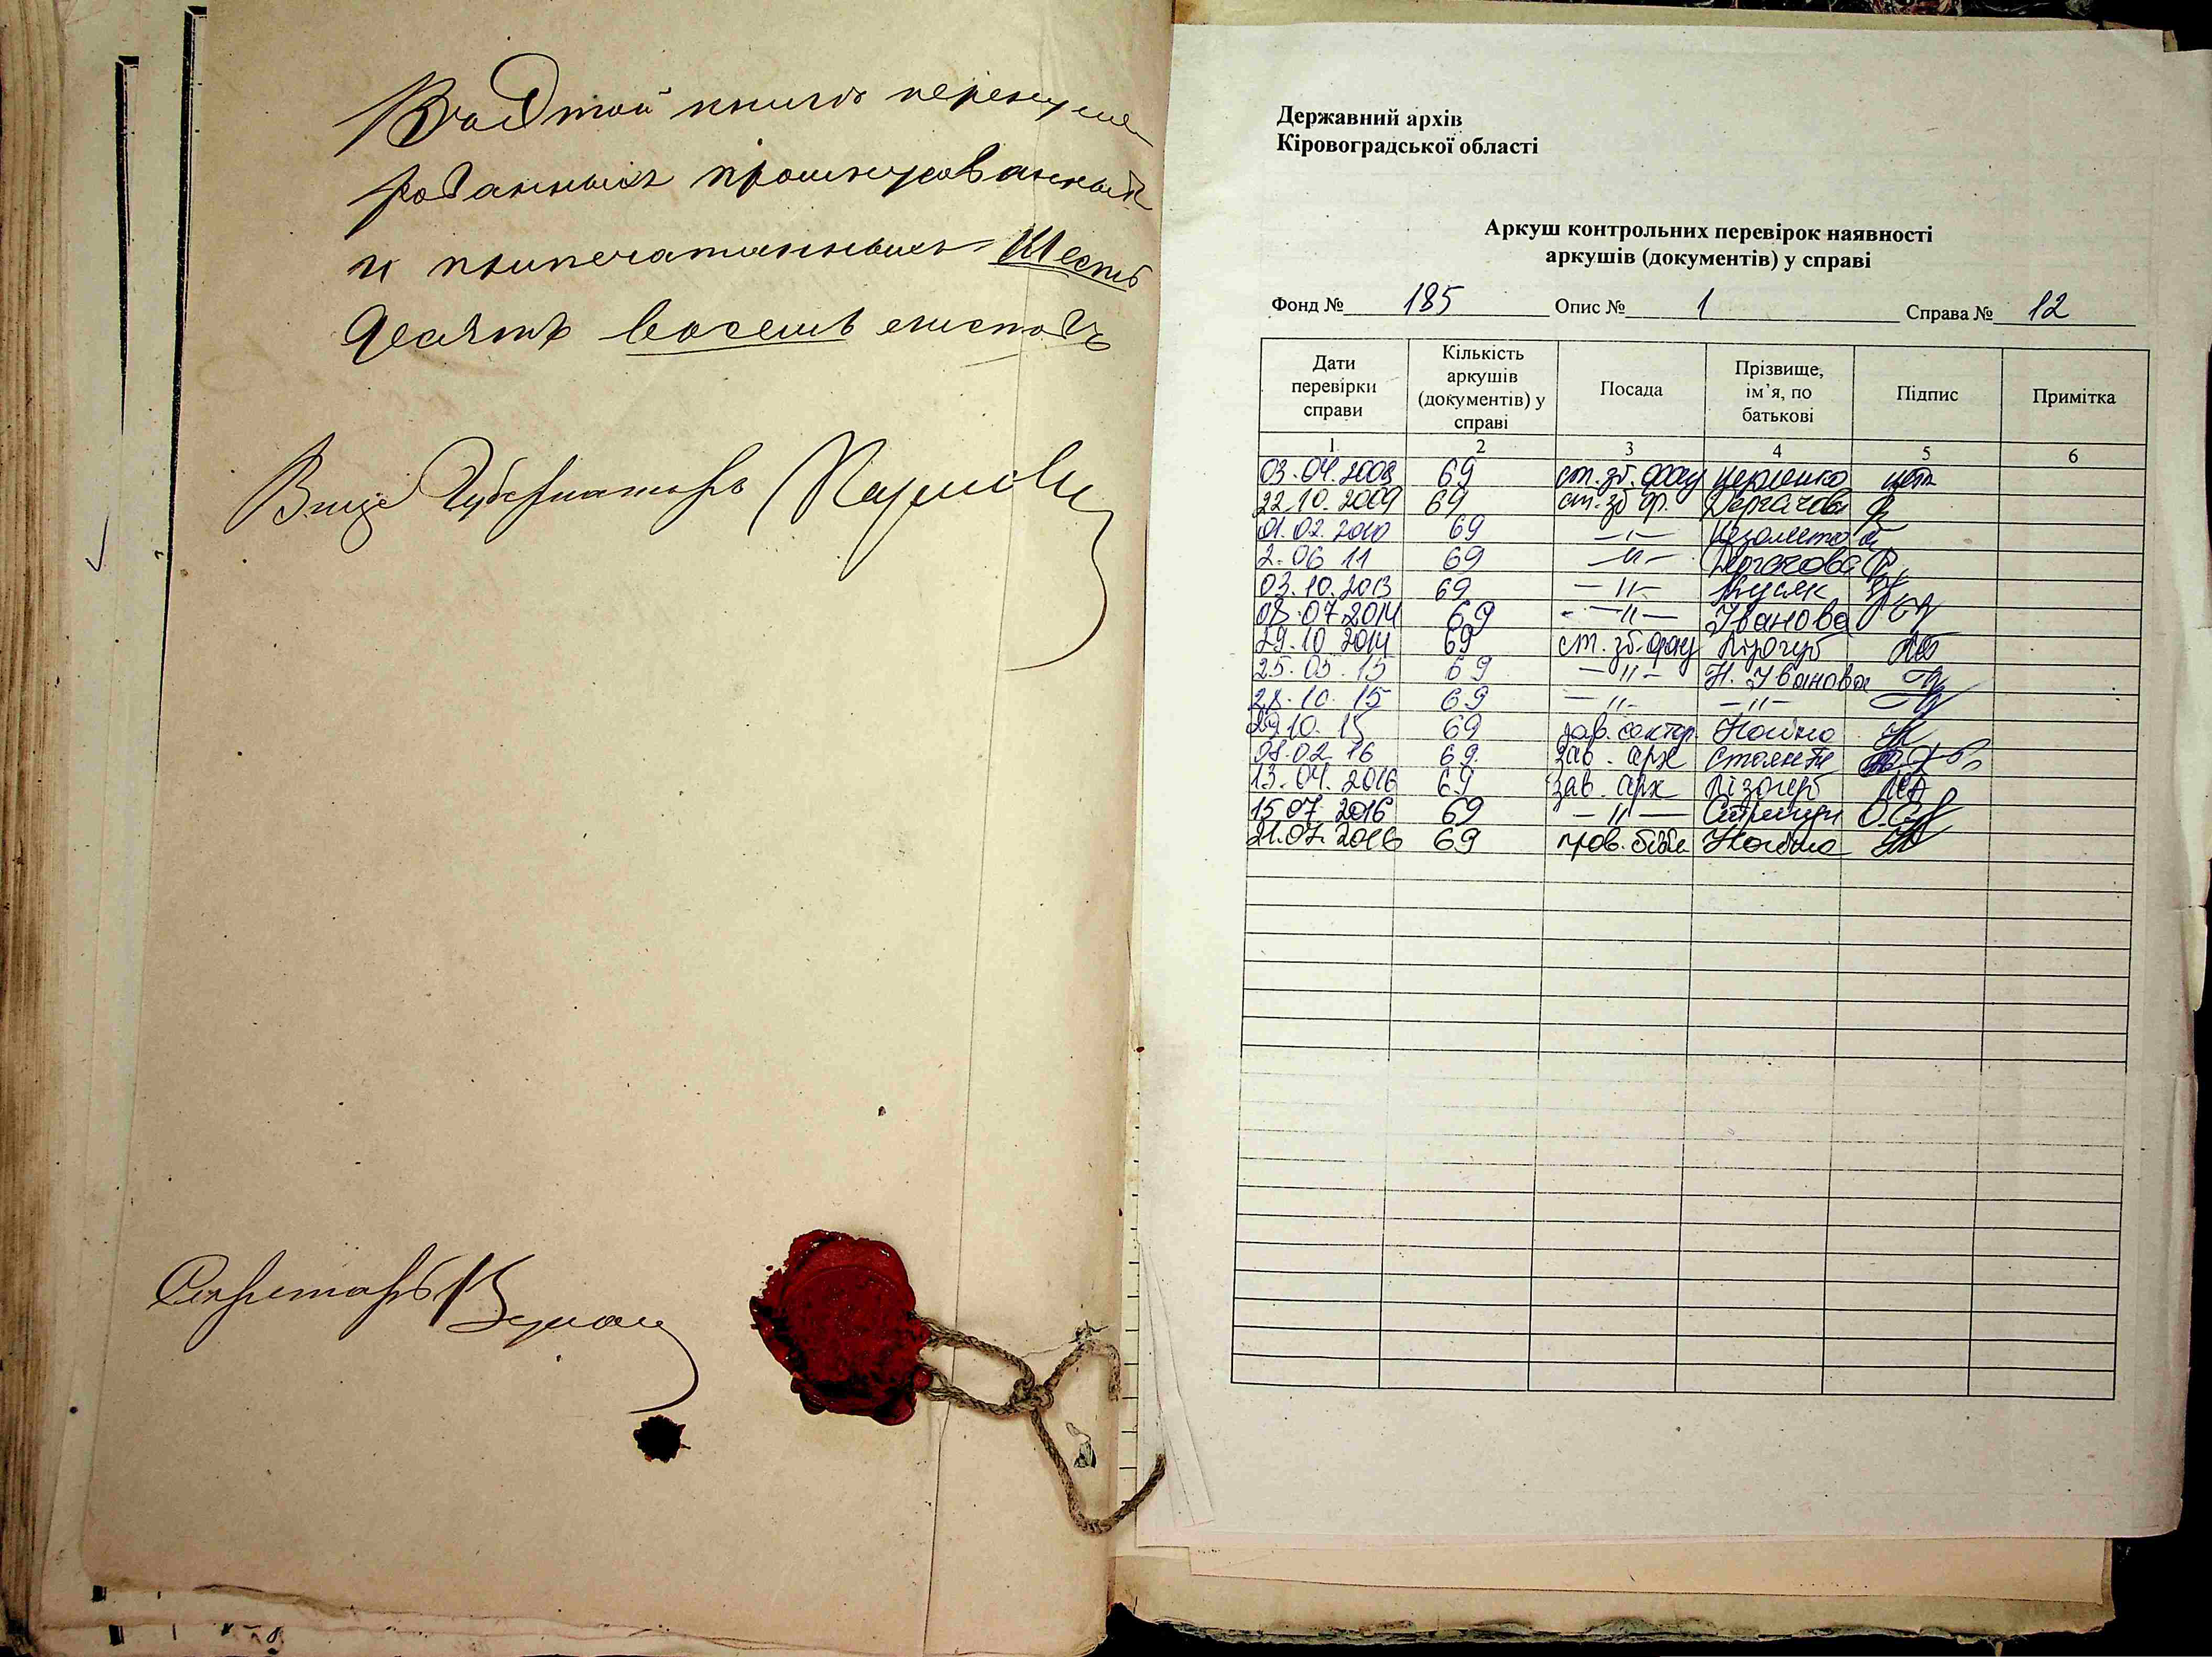 Въ этой книгѣ перенуме
рованныхъ прошнурованныхъ
и припечатанныхъ Шесть
десятъ восемь листовъ
Вице Губернаторъ
Секретарь
Державний архів
Кіровоградської області
Аркуш контрольних перевірок наявності
аркушів (документів) у справі
Фонд № 185 Опис № 1 Справа № 12
Дати перевірки справи Кількість аркушів (документів) у справі Посада Прізвище, ім’я, по батькові Підпис Примітка
1 2 3 4 5 6
03.04.2008 69 ст. зб. фону
22.10.2009 69 ст. зб. ф. Дергачова
01.02.2010 69 -"-
2.06 11 69 -"- Дергачова
03.10.2013 69 -"- Кусяк
08.07.2014 69 -"- Іванова
29.10 2014 69 ст. зб. фону Лізогуб
25.03.15 69 -"- Н. Іванова
28.10.15 69 -"- -"-
29.10.15 69 зав. сектор
08.02.16 69. зав. арх
13.04.2016 69 зав. арх Лізогуб
15.07.2016 69 -"-
21.07.2016 69 пров. бібл